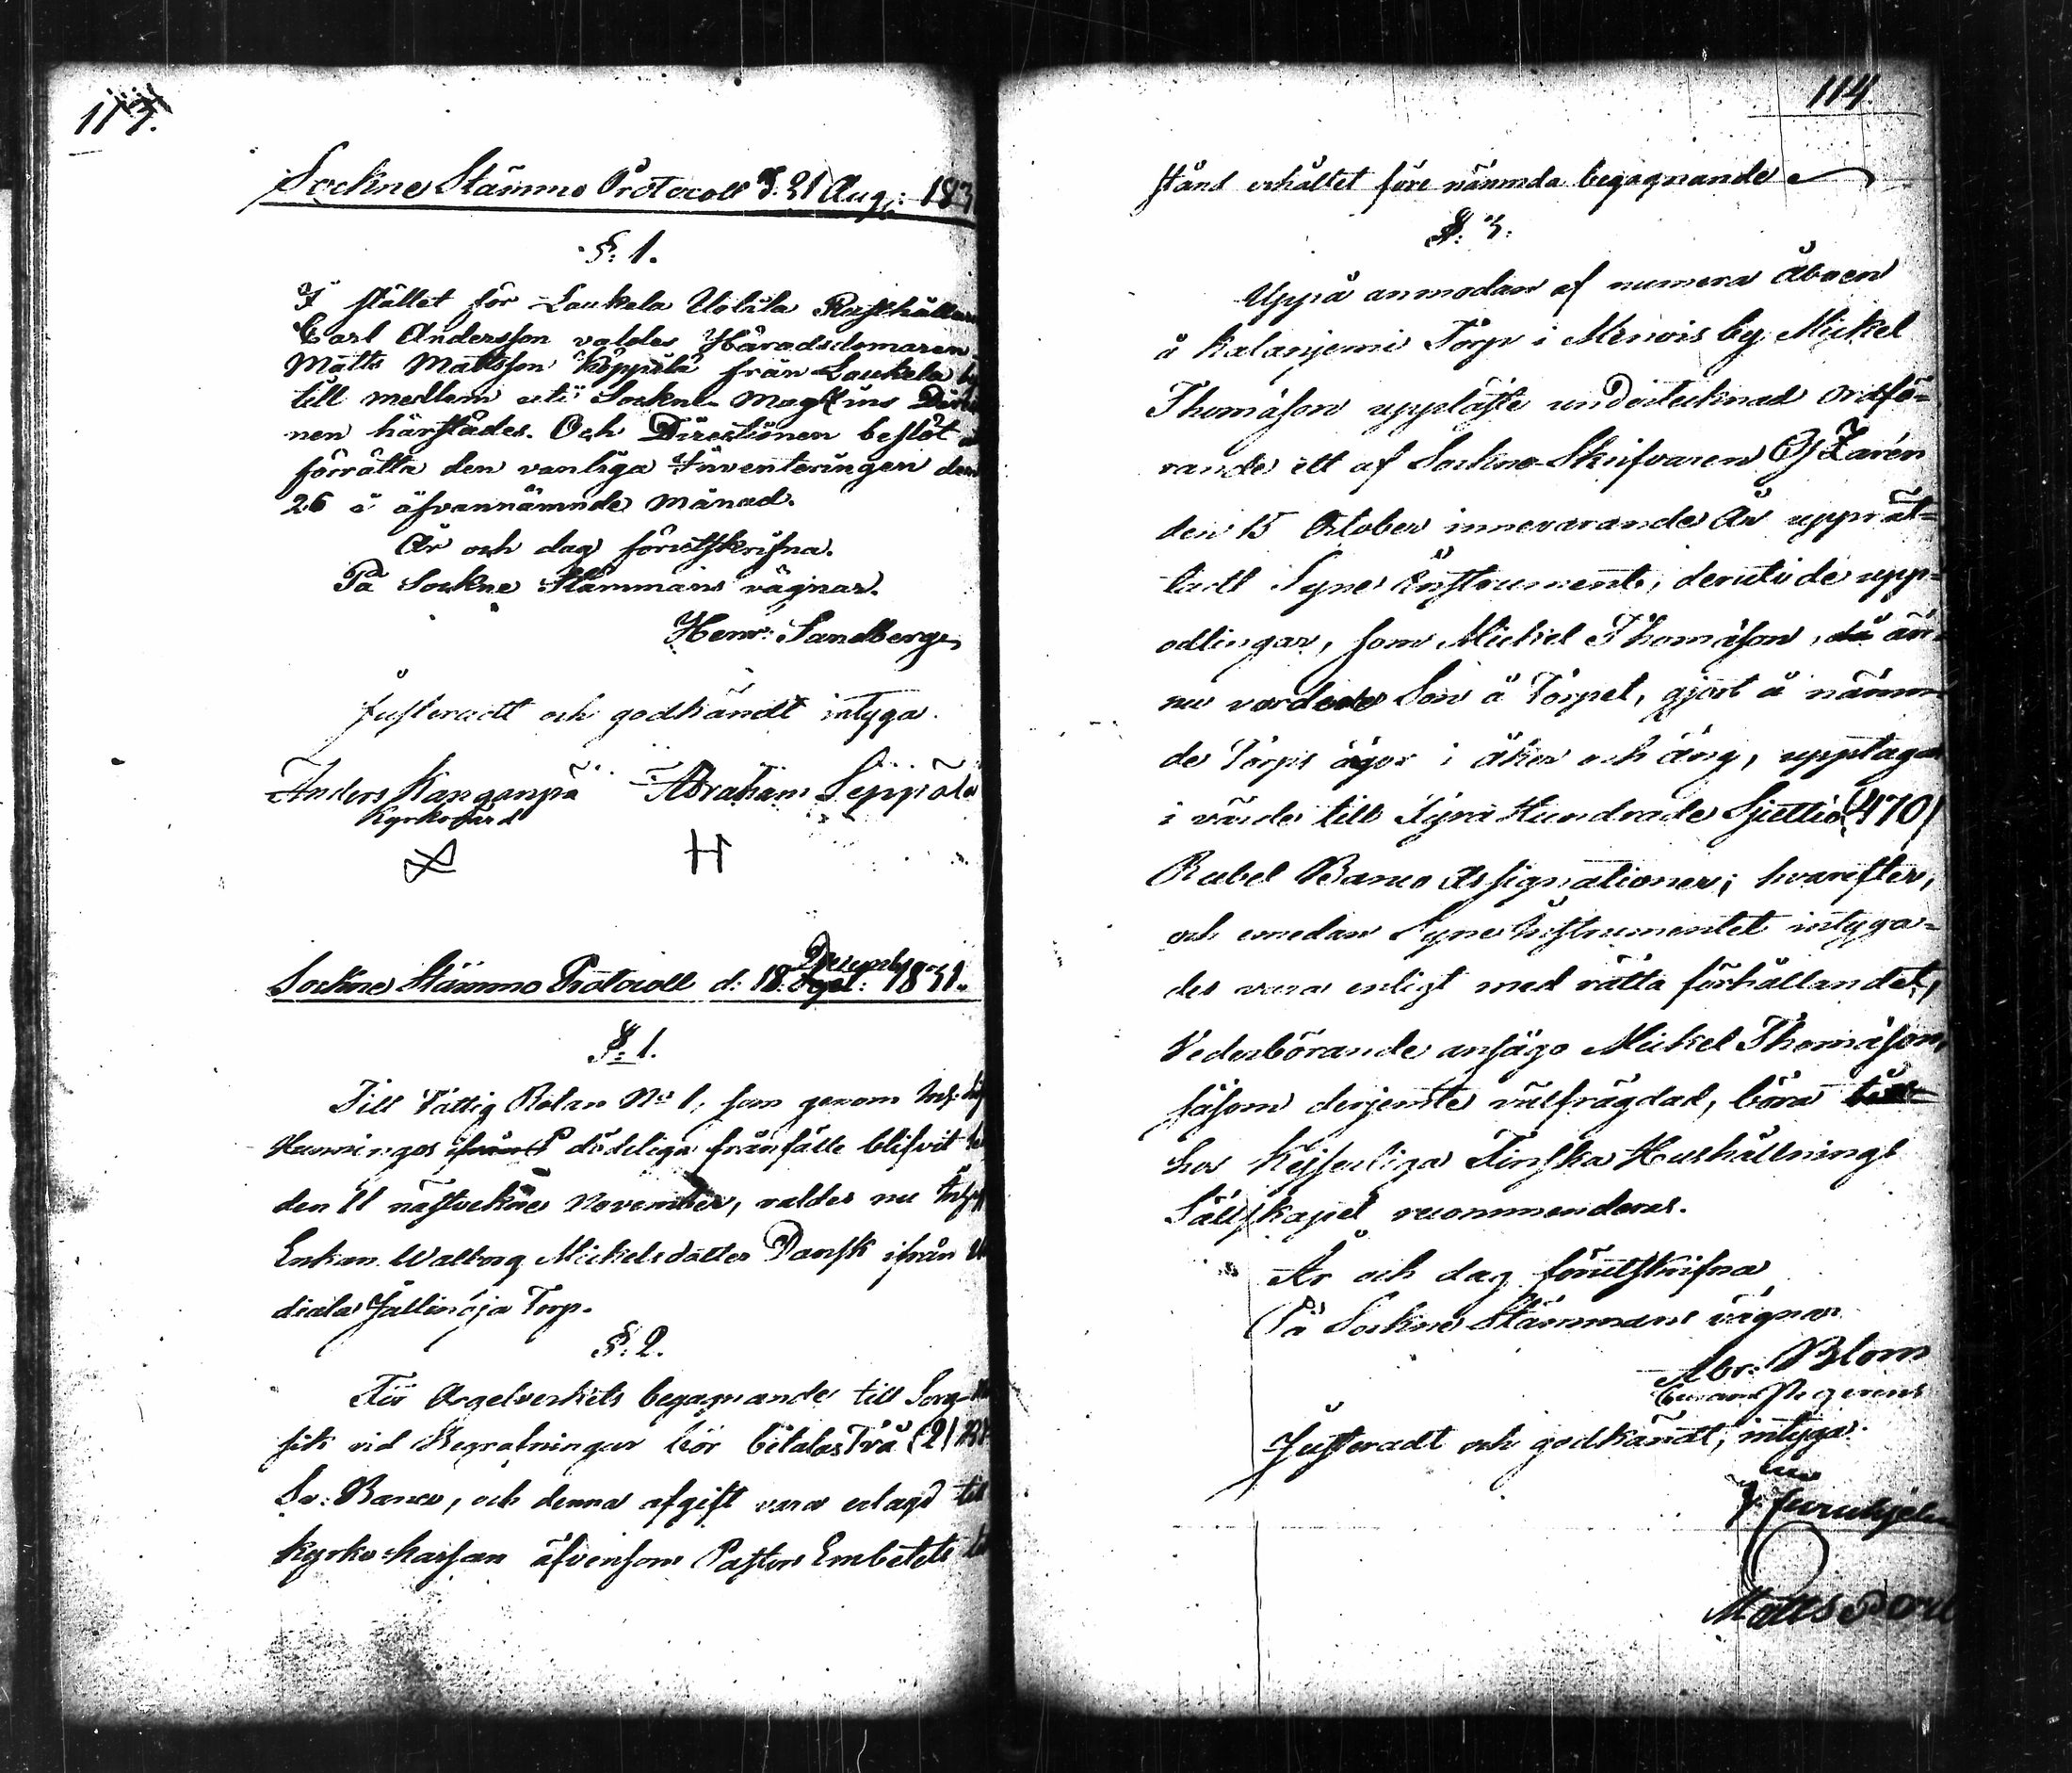 113.
Sockne Stämmo Protocoll d. 21 Aug: 183
§: 1.
I stället för Laukela Uotila Rusthållare
Carl Andersson valdes Häradsdomaren
Matts Mattsson Köppilä från Laukela by
till medlem uti Sockne Magasins Direc
nen härstädes. Och Directionen beslöt
förrätta den vanliga Inventeringen den
26 i åfvannämnde månad.
År och dag förutskrifna.
På Sockne Stämmans vägnar.
Henr: Sandberg
Justeradt och godkändt intyga.
Anders Kanganpä Abraham Seppälä
Kyrkovärd
Sockne Stämmo Protocoll d: 18 Decemb 1831.
§: 1.
Till Fattig Rotan No 1, som genom
Hemmingos ifrån dödeliga frånfälle blifvit
den 11 nästvekne November, valdes nu
Enkan Walborg Mickelsdotter Dansk ifrån
diala Jallinoja Torp.
§: 2.
För Orgelverkets begagnande till Sorg
sik vid Begrafningar bör betalas Två (2) R
Sv: Banco, och denna afgift vara erlagd till
Kyrko-kassan äfvensom Pastors Embetets
114.
stånd erhållet före nämnda begagnande
§: 3.
Uppå anmodan af numera Åboen
å Kalanjemi Torp i Menois by Mickel
Thomasson uppläste undertecknad ordfö-
rande ett af Sockne-Skrifvaren G Zarén
den 15 October innevarande År upprät-
tadt Syne Instrument, deruti de upp-
odlingar, som Mickel Thomasson, då än-
nu vardande Son å Torpet, gjort å nämn
de Torps ägor i åker och äng, upptagas
i värde till Fyra Hundrade Sjuttio (470)
Rubel Banco Assignationer; hvarefter,
och emedan Syne Instrumentet intyga-
des vara enligt med rätta förhållandet,
Vederbörande ansågo Mickel Thomasson,
såsom derjemte välfrägdad, böra
hos Kejserliga Finska Hushållnings
Sällskapet recommenderas.
År och dag förutskrifna
På Sockne Stämmans vägnar
Abr: Blom
Justeradt och godkändt, intyga.
J. Furuhjelm
Matts